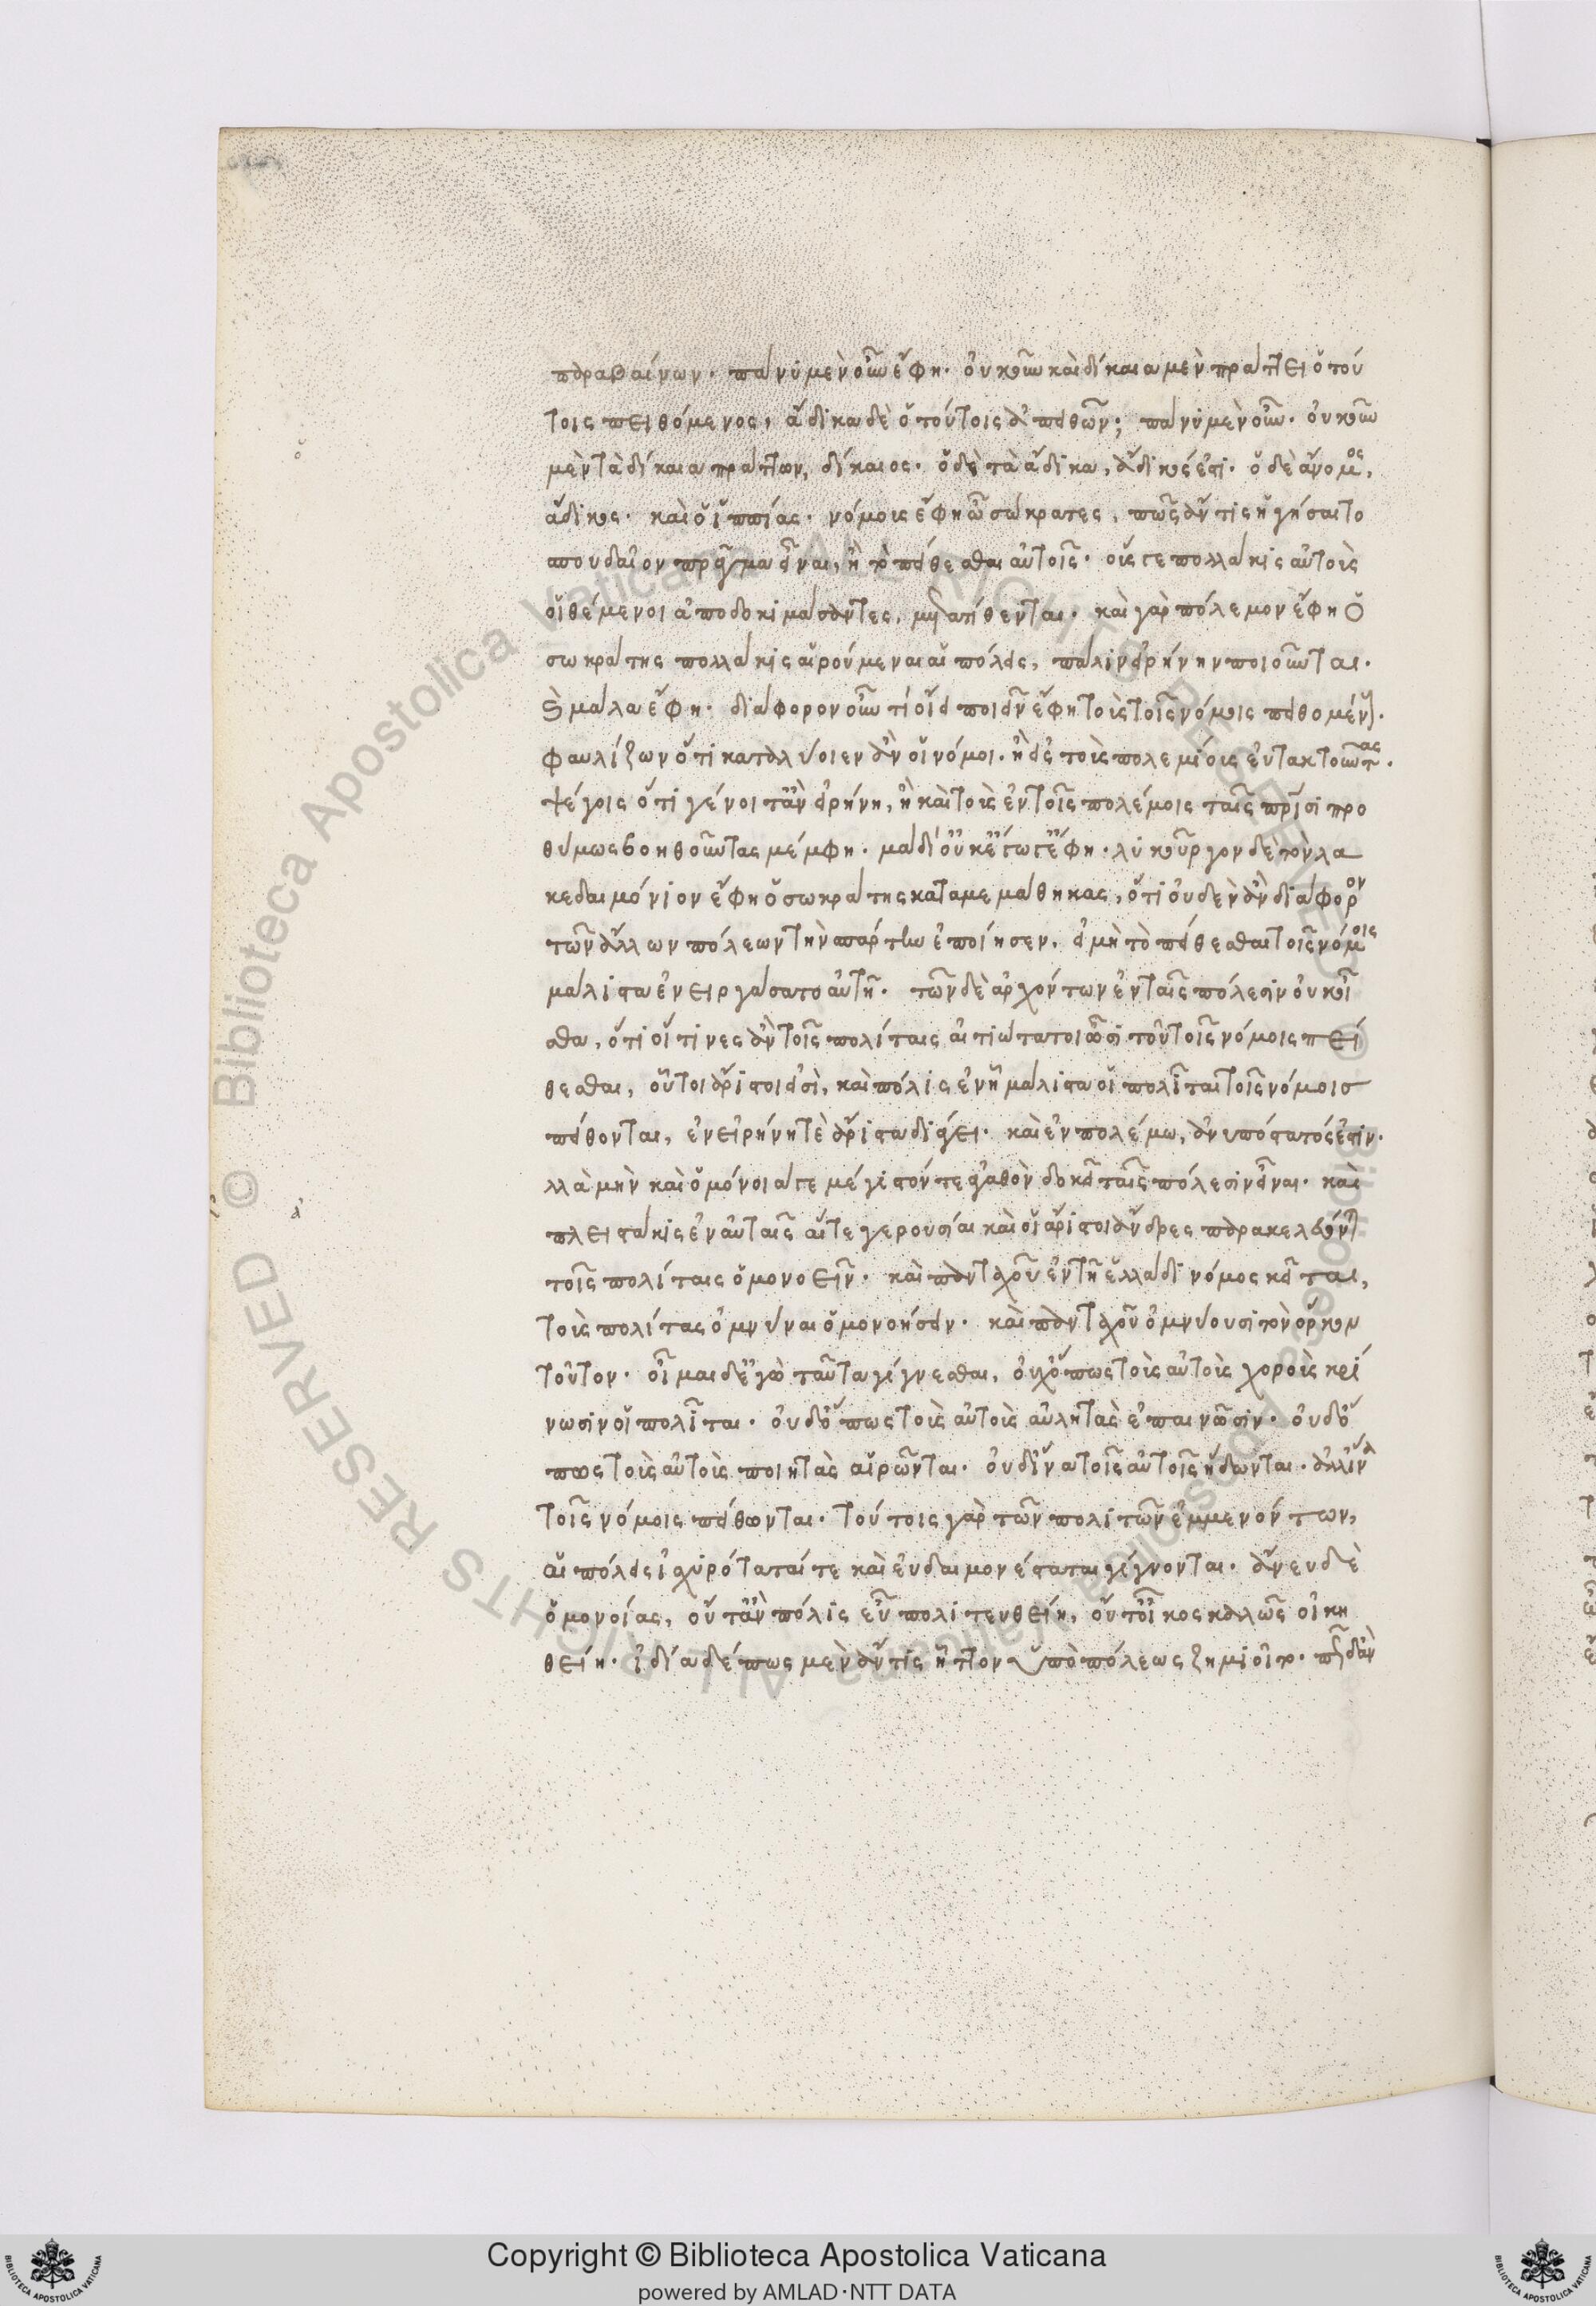 παραβαίνων· πάνυ μὲν οὖν ἔφη· οὐκοῦν καὶ δίκαια μὲν πράττει ὁ τού
τοις πειθόμενος, ἄδικα δὲ ὁ τούτοις ἀπειθῶν; πάνυ μὲν οὖν· οὐκοῦν
μὲν τὰ δίκαια πράττων, δίκαιος· ὁ δὲ τὰ ἄδικα, ἄδικός ἐστι· ὁ δὲ ἄνομος,
ἄδικος· καὶ ὁ ἱππίας· νόμοις ἔφη ὦ σώκρατες, πῶς ἄν τις ἡγήσαιτο
σπουδαῖον πρᾶγμα εἶναι, ἢ τὸ πείθεσθαι αὐτοῖς· οὕς γε πολλάκις αὐτοὶ
οἱ θέμενοι ἀποδοκιμάσαντες, μετατίθενται· καὶ γὰρ πόλεμον ἔφη ὁ
σωκράτης πολλάκις αἱρούμεναι αἱ πόλεις, πάλιν εἰρήνην ποιοῦνται·
καὶ μάλα ἔφη· διάφορον οὖν τί οἴει ποιεῖν ἔφη τοὺς τοῖς νόμοις πειθομένους·
φαυλίζων ὅτι καταλύοιεν ἂν οἱ νόμοι· ἢ εἰ τοὺς πολεμίοις εὐτακτοῦντας·
ψέγοις ὅτι γένοιτ' ἂν εἰρήνη, ἢ καὶ τοὺς ἐν τοῖς πολέμοις ταῖς πατρίσι προ
θύμως βοηθοῦντας μέμφη· μὰ δί' οὐκ ἔγωγ' ἔφη· λυκοῦργον δὲ τὸν λα
κεδαιμόνιον ἔφη ὁ σωκράτης καταμεμάθηκας, ὅτι οὐδὲν ἂν διάφορον
τῶν ἄλλων πόλεων τὴν σπάρτην ἐποίησεν, εἰ μὴ τὸ πείθεσθαι τοῖς νόμοις
μάλιστα ἐνειργάσατο αὐτῇ· τῶν δὲ ἀρχόντων ἐν ταῖς πόλεσιν οὐκ οἶ
σθα, ὅτι οἵτινες ἂν τοῖς πολίταις αἰτιώτατοι ὦσι τοῦ τοῖς νόμοις πεί
θεσθαι, οὗτοι ἄριστοι εἰσὶ, καὶ πόλις ἐν ᾗ μάλιστα οἱ πολῖται τοῖς νόμοισ
πείθονται, ἐν εἰρήνη τὲ ἄριστα διάγει· καὶ ἐν πολέμω, ἀνυπόστατός ἐστιν·
λλὰ μὴν καὶ ὁμόνοιά γε μέγιστόν τε ἀγαθὸν δοκεῖ ταῖς πόλεσιν εἶναι· καὶ
πλειστάκις ἐν αὐταῖς αἵ τε γερουσίαι καὶ οἱ ἄριστοι ἄνδρες παρακελεύονται
τοῖς πολίταις ὁμονοεῖν· καὶ πανταχοῦ ἐν τῇ ἑλλάδι νόμος κεῖται,
τοὺς πολίτας ὀμνύναι ὁμονοήσειν· καὶ πανταχοῦ ὀμνύουσι τὸν ὅρκον
τοῦτον· οἶμαι δ' ἐγὼ ταῦτα γίγνεσθαι, οὐχ ὅπως τοὺς αὐτοὺς χοροὺς κρί
νωσιν οἱ πολῖται· οὐδ' ὅπως τοὺς αὐτοὺς αὐλητὰς ἐπαινῶσιν· οὐδ' ὅ
πως τοὺς αὐτοὺς ποιητὰς αἱρῶνται· οὐδ' ἵνα τοῖς αὐτοῖς ἥδωνται· ἀλλ' ἵνα
τοῖς νόμοις πείθωνται· τούτοις γὰρ τῶν πολιτῶν ἐμμενόντων,
αἱ πόλεις ἰσχυρόταταί τε καὶ εὐδαιμονέσταται γίγνονται· ἄνευ δὲ
ὁμονοίας, οὔτ' ἂν πόλις εὖ πολιτευθείη, οὔτ' οἶκος καλῶς οἰκη
θείη· ἰδία δέ πως μὲν ἄν τις ἧττον ὑπὸ πόλεως ζημιοῖτο· πῶς δ' ἂν
Copyright © Biblioteca Apostolica Vaticana
powered by AMLAD·NTT DATA